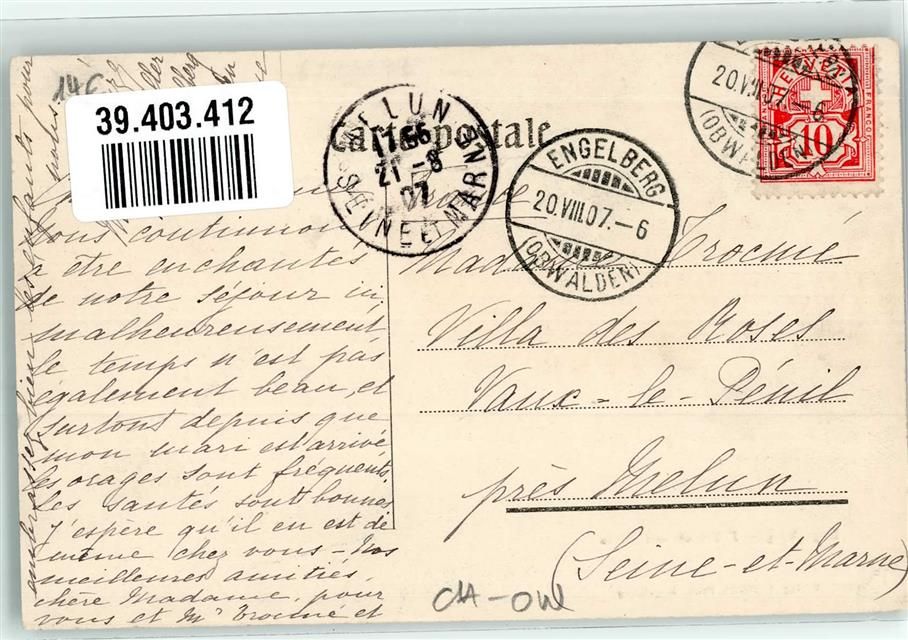 14 C
39.403.412
Carte postale
MELUN
11 55
21 - 8
07
SEINE ET MARNE
ENGELBERG
20.VIII.07.-6
(OBWALDEN)
20.VIII.07.-6
(OBWALDEN)
HELVETIA
FRANCO
10
Madame Trocmé
Villa des Roses
Vaux-le-Pénil
près Melun
(Seine-et-Marne)
Nous continuons
à être enchantés
de notre séjour ici,
malheureusement
le temps n'est pas
également beau, et
surtout depuis que
mon mari est arrivé
les orages sont fréquents.
Les santés sont bonnes
J'espère qu'il en est de
même chez vous - Nos
meilleures amitiés,
chère Madame, pour
vous et Mr Trocmé et
embrassez bien les enfants pour
CH-OW